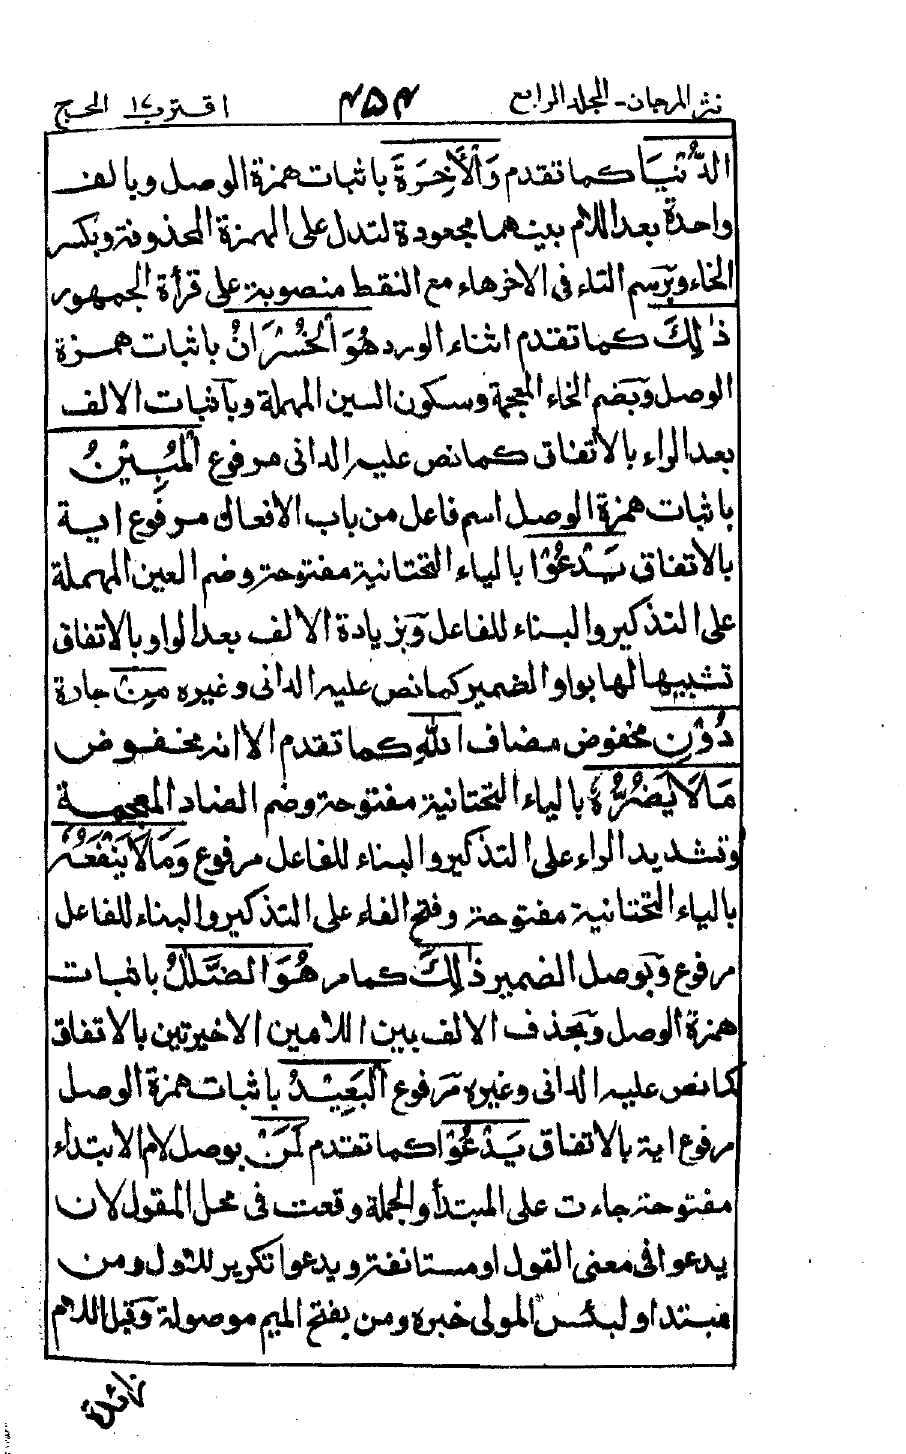 نثر المرجان - المجلد الرابع ۴۵۴ اقترب ١٧ الحج
الدُّنْيَا كما تقدم وَالْاٰخِرَةَ باثبات همزة الوصل وبالف
واحدة بعد اللام بينهما مجعودة لتدل على الهمزة المحذوفة وبكسر
الخاء وبرسم التاء فى الاخر هاء مع النقط منصوبة على قرأة الجمهور
ذٰلِكَ كما تقدم اثناء الورد هُوَ الْخُسْرَانُ باثبات همزة
الوصل وبضم الخاء المعجمة وسكون السين المهملة وباثبات الالف
بعد الراء بالاتفاق كما نص عليه الدانى مرفوع الْمُبِيْنُ
باثبات همزة الوصل اسم فاعل من باب الافعال مرفوع اية
بالاتفاق يَدْعُوْا بالياء التحتانية مفتوحة وضم العين المهملة
على التذكير والبناء للفاعل وبزيادة الالف بعد الواو بالاتفاق
تشبيها لها بواو الضمير كما نص عليه الدانى وغيره مِنْ جادة
دُوْنِ مخفوض مضاف اللّٰهِ كما تقدم الا انه مخفوض
مَا لَا يَضُرُّهٗ بالياء التحتانية مفتوحة وضم الضاد المعجمة
وتشديد الراء على التذكير والبناء للفاعل مرفوع وَمَا لَا يَنْفَعُهٗ
بالياء التحتانية مفتوحة وفتح الفاء على التذكير والبناء للفاعل
مرفوع وبوصل الضمير ذٰلِكَ كما مر هُوَ الضَّلٰلُ باثبات
همزة الوصل وبحذف الالف بين اللامين الاخيرتين بالاتفاق
كما نص عليه الدانى وغيره مرفوع الْبَعِيْدُ باثبات همزة الوصل
مرفوع اية بالاتفاق يَدْعُوْا كما تقدم لَمَنْ بوصل لام الابتداء
مفتوحة جاءت على المبتدأ والجملة وقعت فى محل المقول لان
يدعوا فى معنى القول او مستانفة ويدعوا تكرير للاول ومن
مبتدا و لبئس المولى خبره ومن بفتح الميم موصولة وقبل اللام
زائدة